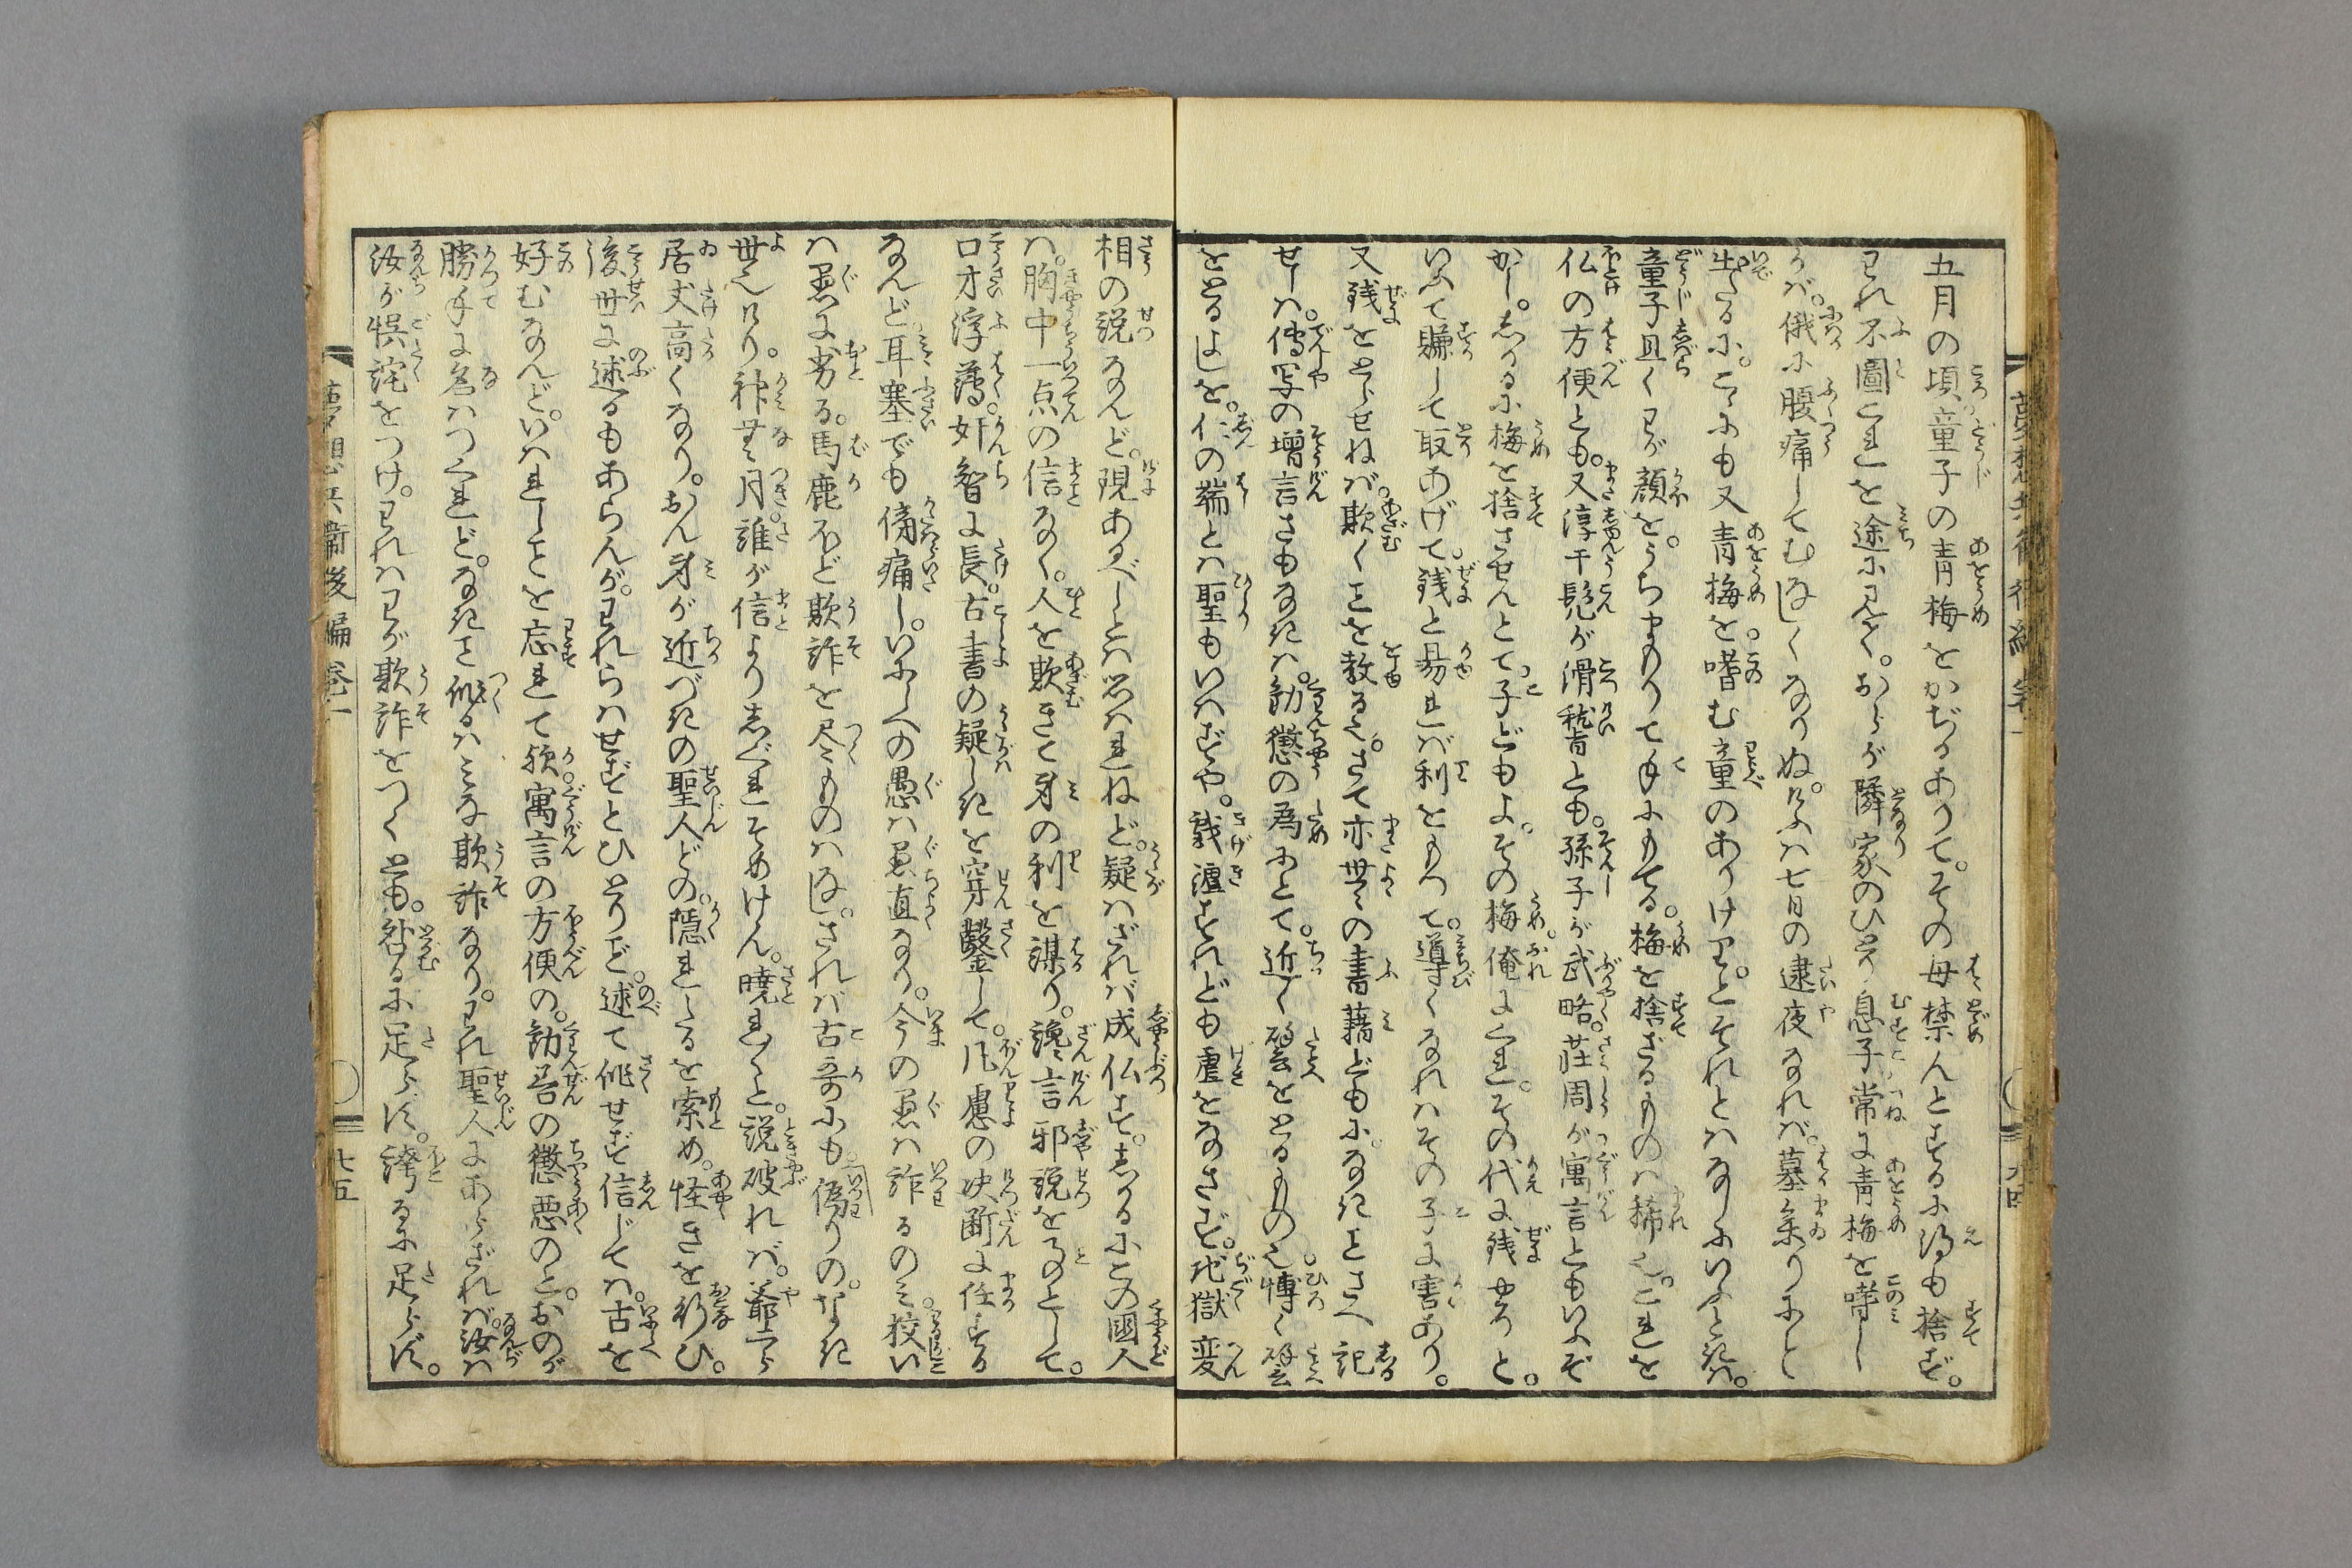 五月の頃童子の青梅をかぢるありて。その母禁んとするに得も捨ず。
われ不圖これを途にみて。おらが隣家のひとり息子常に青梅を嗜し
が。俄に腹痛してむなしくなりぬ。けふは七日の逮夜なれば。墓参りにとて
出たるに。こゝにも又青梅を嗜む童のありけり。とそれとはなしにいふときは。
童子且くわが顔を。うちまもりて手にもてる。梅を捨ざるものは稀也。これを
仏の方便とも。又淳于髡が滑稽とも。孫子が武略。荘周が寓言ともいふぞ
かし。しかるに梅を捨させんとて。子どもよ。その梅俺にくれ。その代に銭やろと。
いふて賺して取あげて。銭と易れば利をもつて。導くなれはその子に害あり。
又銭をとらせねば。欺くことを教る也。さて亦世々の書籍どもに。なきことさへ記
せしは。傳写の増言さもなきは。勧懲の為にとて。近く譬をとるもの也。博く譬
をとるよしを。仁の端とは聖もいはずや。戯謔すれども虐をなさず。地獄変
相の説なんど。現あるべしとは思はれねど。疑はざれば成仏す。しかるにこの國人
は。胸中一点の信なく。人を欺きて身の利を謀り。讒言邪説をことゝして。
口才浮薄。奸智に長。古書の疑しきを穿鑿して。凡慮の决断に任する
なんど。耳塞でも傍痛し。いにしへの愚は愚直なり。今の愚は詐るのみ。狡い
は愚に劣る。馬鹿ほど欺詐を尽ものはなし。されば古哥にも。偽りの。なき
世也けり。神無月。誰が信より。しぐれそめけん。曉れ〱と。説破れば。爺うら
居丈高くなり。おん身が近づきの聖人どの。隠れたるを索め。怪きを行ひ。
後世に述るもあらんが。われらはせずとひとりごと。述て作せず信じては。古を
好むなんど。いはれしことを忘れて歟。寓言の方便の。勧善の懲悪のと。おのが
勝手に名はつくれど。なきを作るはみな欺詐なり。われ聖人にあらざれば。汝は
汝が悞詫をつけ。われはわが欺詐をつくとも。咎るに足らず。誇るに足らず。